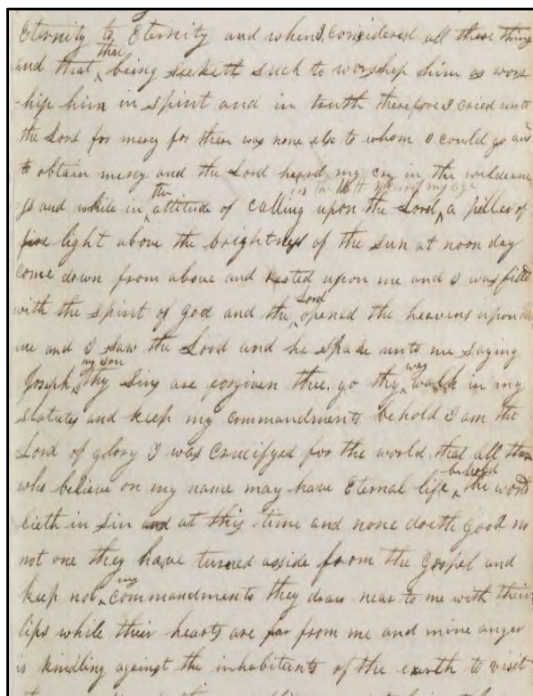 Eternity to Eternity and when I considered all these things
and that that being seeketh such to worship him as wors
-hip him in spirit and in truth therefore I cried unto
the Lord for mercy for there was none else to whom I could go and
to obtain mercy and the Lord heard my cry in the wilderne
in the 16th year of my age
ss and while in the attitude of calling upon the Lord a piller of
fire light above the brightness of the sun at noon day
come down from above and rested upon me and I was filled
with the spirit of god and the Lord opened the heavens upon
me and I saw the Lord and he spake unto me saying
Joseph my son thy sins are forgiven thee. go thy way walk in my
statutes and keep my commandments behold I am the
Lord of glory I was crucifyed for the world that all those
who believe on my name may have Eternal life behold the world
lieth in sin and at this time and none doeth good no
not one they have turned asside from the gospel and
keep not my commandments they draw near to me with their
lips while their hearts are far from me and mine anger
is kindling against the inhabitants of the earth to visit